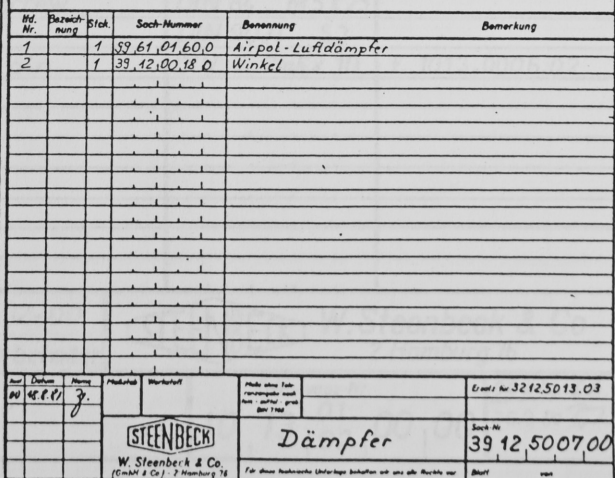 lfd. Nr. Bezeich-nung Stck. Sach-Nummer Benennung Bemerkung
1 1 99,61,01,60,0 Airpot-Luftdämpfer
2 1 39,12,00,18 0 Winkel
Datum Name Maßstab Werkstoff Maße ohne Tole-
ranzangabe nach
fein - mittel - grob
DIN 7168
Ersatz für 3212.5013.03
00
STEENBECK
W. Steenbeck & Co.
(GmbH & Co) · 2 Hamburg 76
Dämpfer
Sach-Nr.
39 12,5007,00
Für diese technische Unterlage behalten wir uns alle Rechte vor
Blatt von